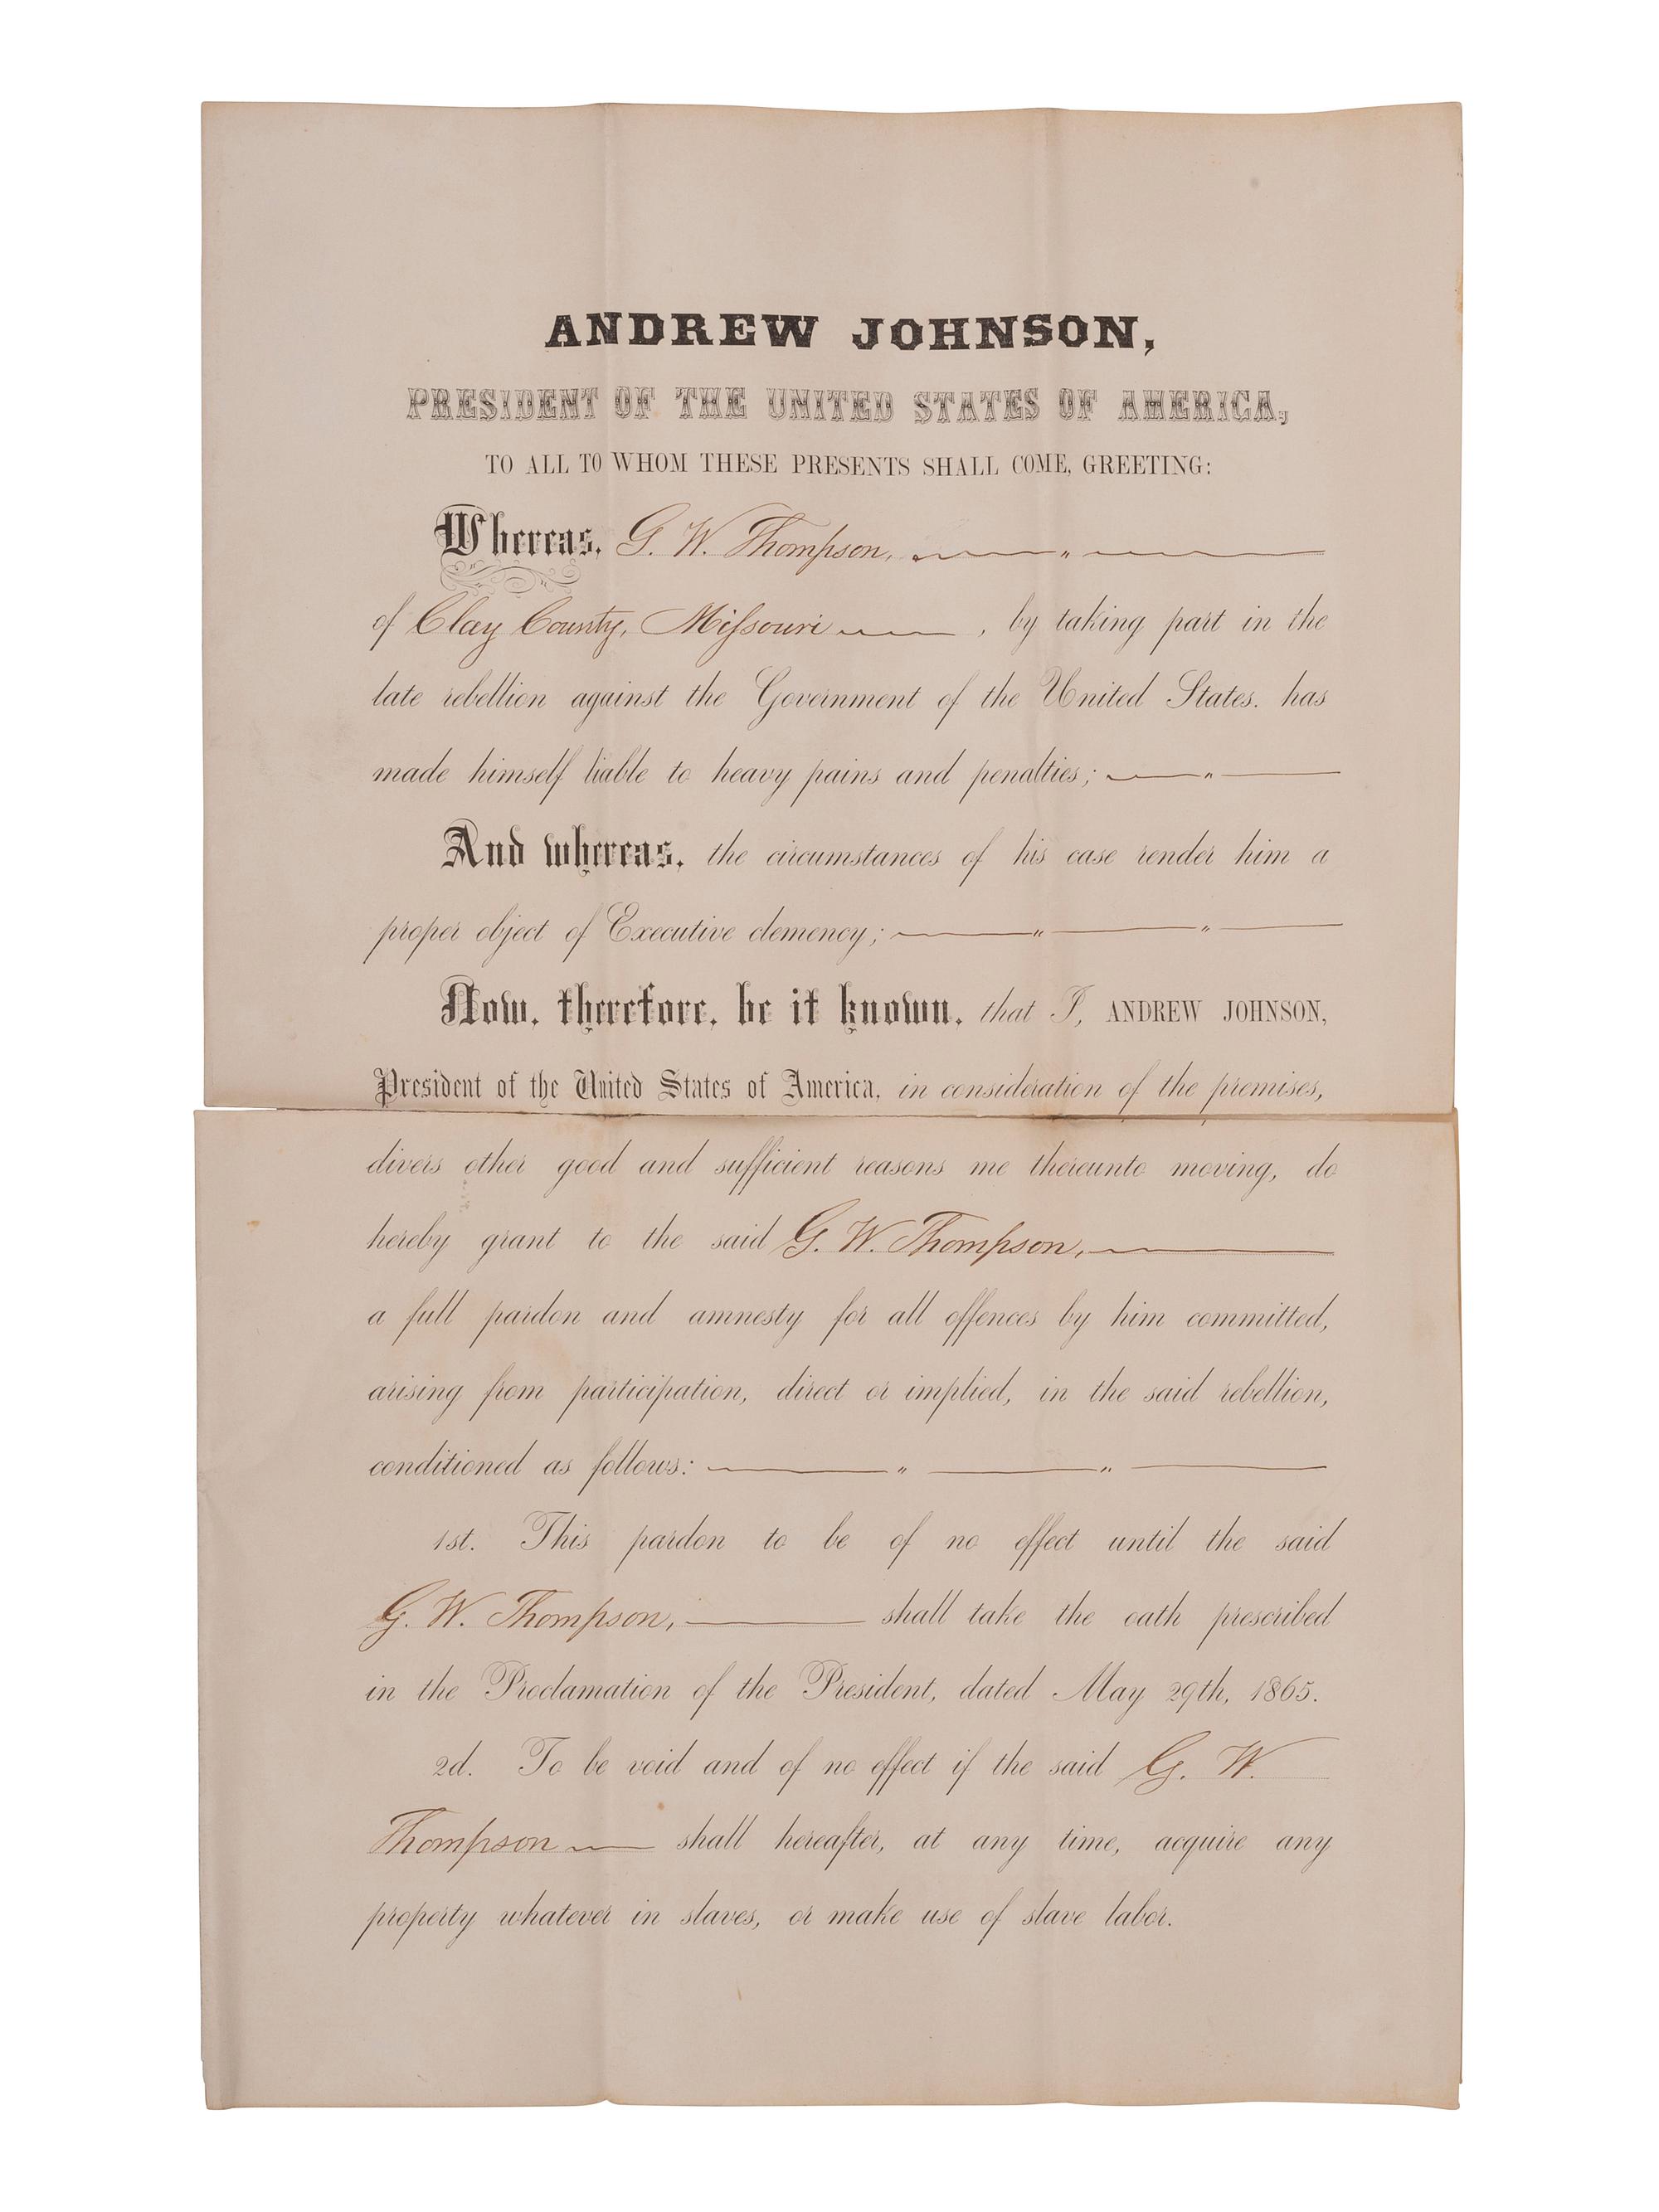 ANDREW JOHNSON,
PRESIDENT OF THE UNITED STATES OF AMERICA,
TO ALL TO WHOM THESE PRESENTS SHALL COME, GREETING:
Whereas, G. W. Thompson,
of Clay County, Missouri, by taking part in the
late rebellion against the Government of the United States, has
made himself liable to heavy pains and penalties;
And whereas, the circumstances of his case render him a
proper object of Executive clemency;
Now, therefore, be it known, that I, ANDREW JOHNSON,
President of the United States of America, in consideration of the premises,
divers other good and sufficient reasons me thereunto moving, do
hereby grant to the said G. W. Thompson,
a full pardon and amnesty for all offences by him committed,
arising from participation, direct or implied, in the said rebellion,
conditioned as follows:
1st. This pardon to be of no effect until the said
G. W. Thompson, shall take the oath prescribed
in the Proclamation of the President, dated May 29th, 1865.
2d. To be void and of no effect if the said G. W.
Thompson shall hereafter, at any time, acquire any
property whatever in slaves, or make use of slave labor.